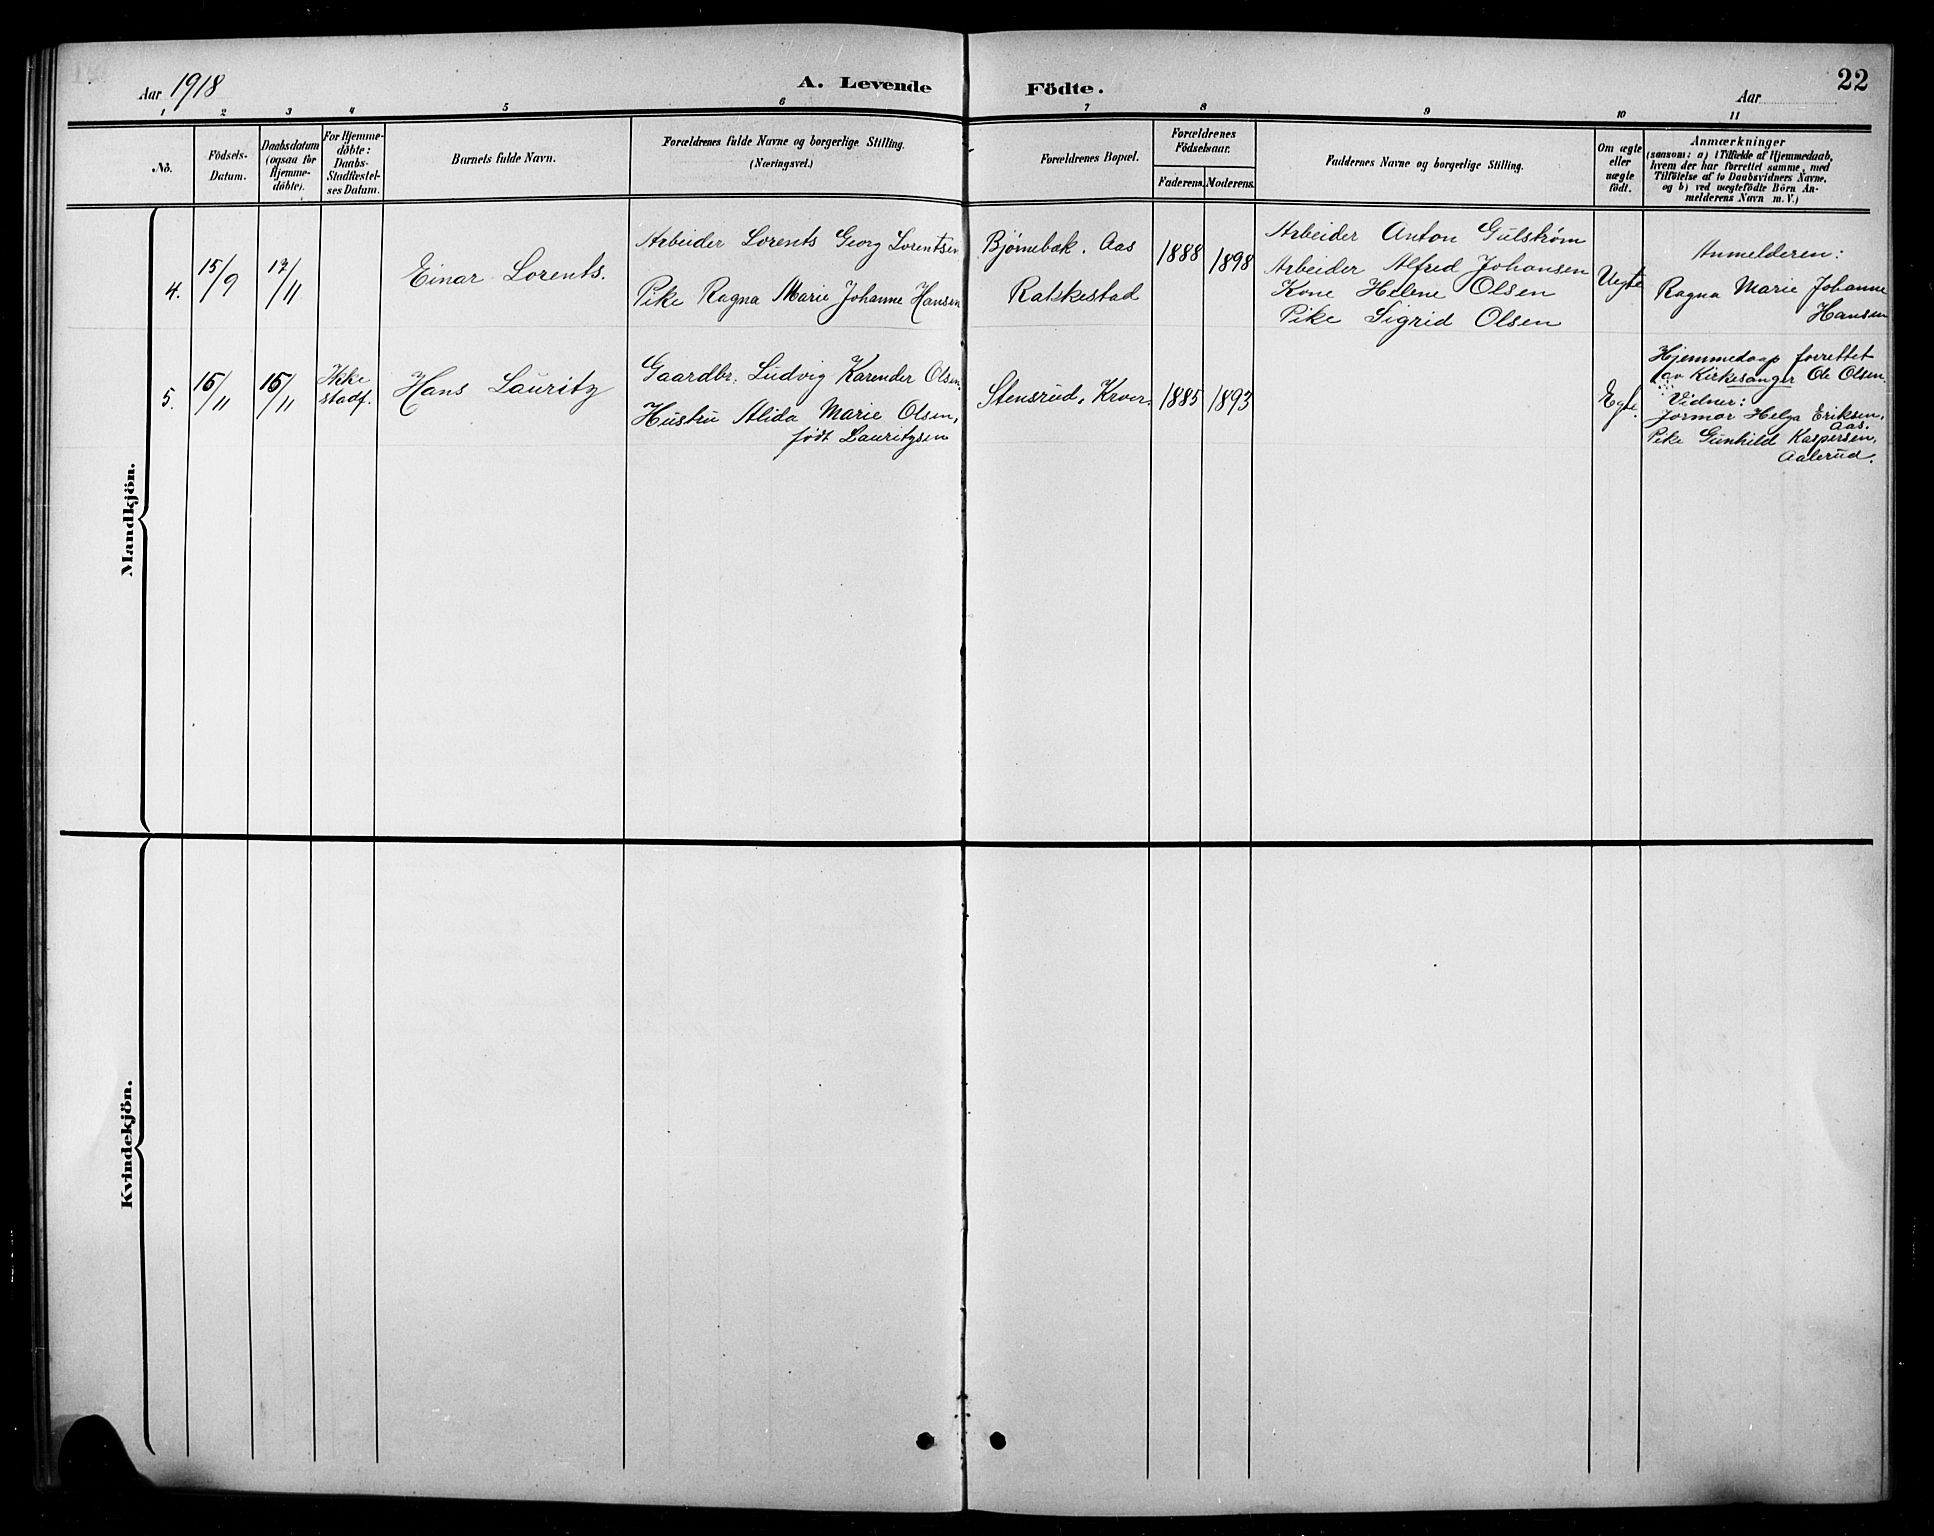 Aar 1918
A. Levende Födte.
Aar
22
1 2 3 4 5 6 7 8 9 10 11
No.
Födsels-
Datum.
Daabsdatum
(ogsaa for
Hjemme-
döbte).
For Hjemme-
döbte:
Daabs-
Stadfæstel-
ses Datum.
Barnets fulde Navn.
Forældrenes fulde Navne og borgerlige Stilling.
(Næringsvei.)
Forældrenes Bopæl.
Forældrenes
Födselsaar.
Faderens. Moderens.
Faddernes Navne og borgerlige Stilling.
Om ægte
eller
uægte
födt.
Anmærkninger
(saasom: a) i Tilfælde af Hjemmedaab,
hvem der har forrettet samme, med
Tilföielse af to Daabsvidners Navne,
og b) ved uægtefödte Börn An-
melderens Navn m. V.)
Mandkjön.
4.
15/9
17/11
Einar Lorents.
Arbeider Lorents Georg Lorentsen
Pike Ragna Marie Johanne Hansen
Bjørnebæk. Aas
Rakkestad
1888
1898
Arbeider Anton Gulstrøm
Arbeider Alfred Johansen
Kone Helene Olsen
Pike Sigrid Olsen
Uegte
Anmelderen:
Ragna Marie Johanne
Hansen
5.
15/11
15/11
Ikke
stadf.
Hans Lauritz
Gaardbr. Ludvig Karender Olsen.
Hustru Alida Marie Olsen,
født Lauritzsen
Stensrud, Kroer.
1885
1893
Egte.
Hjemmedaap forrettet
av Kirkesanger Ole Olsen.
Vidner:
Jormor Helga Eriksen,
Aas.
Pike Gunhild Kaspersen,
Aalerud.
Kvindekjön.